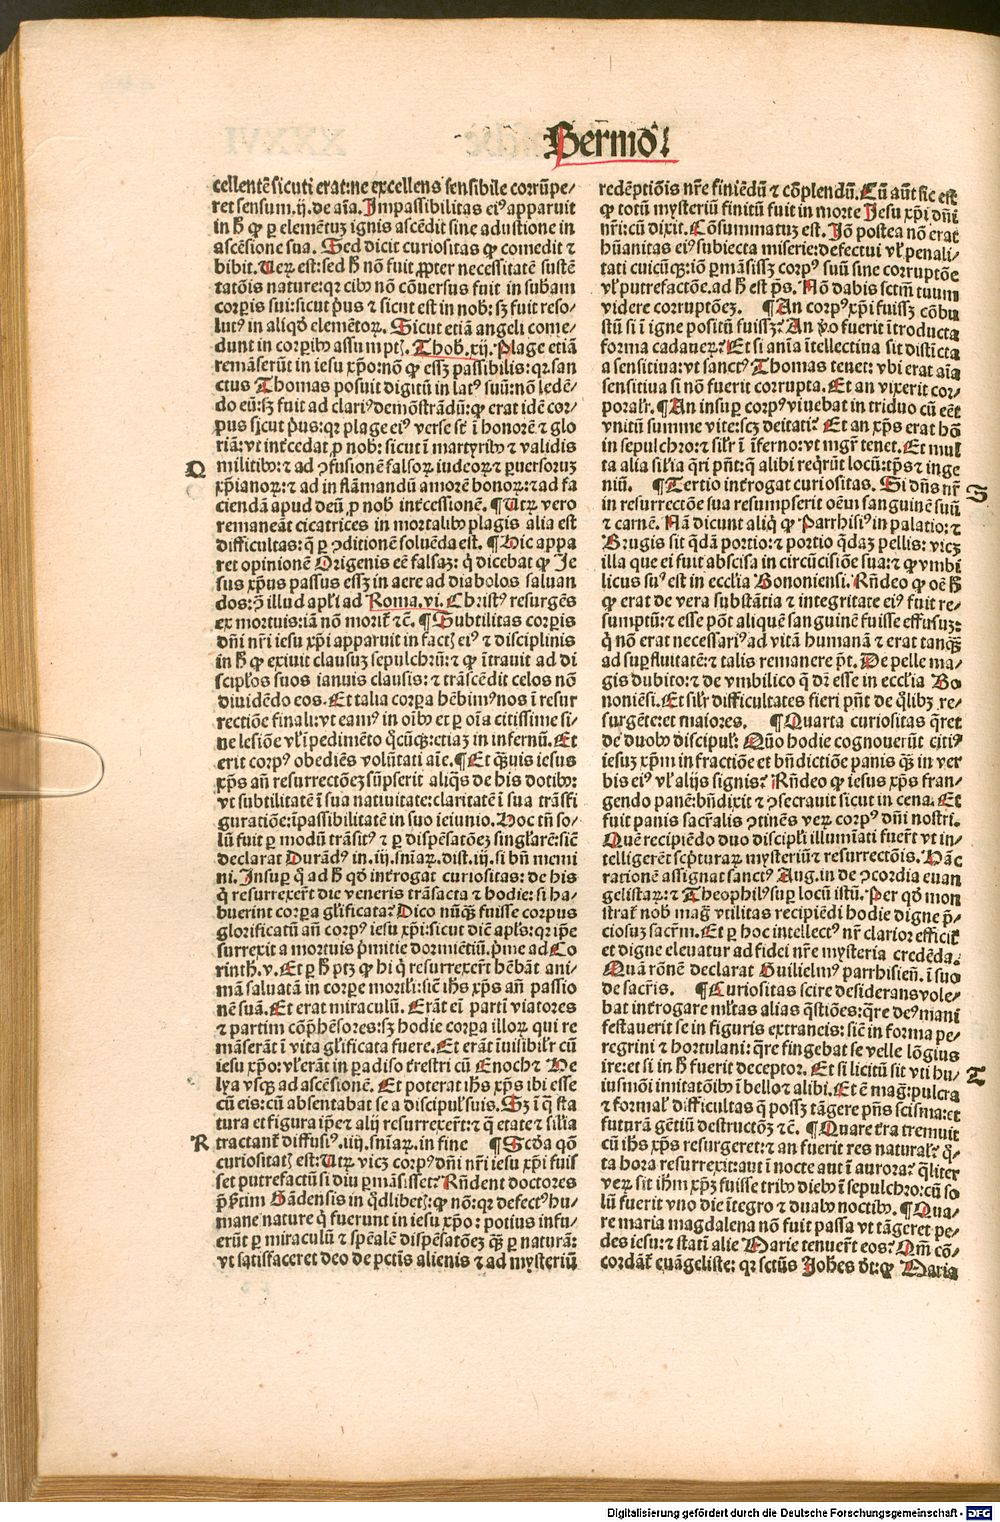 Sermo
cellentē sicuti erat: ne excellens sensibile corrūpe⸗
ret sensum. ij. de aīa. Impassibilitas eiꝰ apparuit
in h̄ ꝙ ꝑ elementuꝫ ignis ascēdit sine adustione in
ascēsione sua. Sed dicit curiositas ꝙ comedit ⁊
bibit. Ueꝝ est: sed h̄ nō fuit ꝓpter necessitatē sustē
tatōis nature: qꝛ cibꝰ nō cōuersus fuit in subam
corꝑis sui: sicut pͥus ⁊ sicut est in nob̄: sꝫ fuit reso⸗
lutꝰ in aliqd̄ elemētoꝝ. Sicut etiā angeli come⸗
dunt in corꝑibꝰ assumptꝭ. Thob. xij. Plage etiā
remāserūt in iesu xp̄o: nō ꝙ essꝫ passibilis: qꝛ san
ctus Thomas posuit digitū in latꝰ suū: nō ledē⸗
do eū: sꝫ fuit ad clariꝰ demōstrādū: ꝙ erat idē cor⸗
pus sicut pͥus: qꝛ plage eiꝰ verse st̄ ī honorē ⁊ glo
riā: vt int̄cedat ꝓ nob̄: sicut ī martyribꝰ ⁊ validis
Q
militibꝰ: ⁊ ad ꝯfusionē falsoꝝ iudeoꝝ ⁊ ꝑuersorum
xp̄ianoꝝ: ⁊ ad inflāmandū amorē bonoꝝ: ⁊ ad fa
ciendā apud deū ꝓ nob̄ int̄cessionē. ¶ Utꝝ vero
remaneāt cicatrices in mortalibꝰ plagis alia est
difficultas: q̄ ꝑ ꝯditionē soluēda est. ¶ Hic appa
ret opinionē Origenis eē falsaꝫ: q̄ dicebat ꝙ Je
sus xp̄us passus essꝫ in aere ad diabolos saluan
dos: ꝯ̄ illud apl̄i ad Roma. vi. Christꝰ resurgēs
ex mortuis: iā nō morit̄ ⁊c̄. ¶ Subtilitas corꝑis
dn̄i nr̄i iesu xp̄i apparuit in factꝭ eiꝰ ⁊ disciplinis
in h̄ ꝙ exiuit clausuꝫ sepulchrū: ⁊ ꝙ ītrauit ad di
scipl̄os suos ianuis clausis: ⁊ trāscēdit celos nō
diuidēdo eos. Et talia corꝑa hēbimꝰ nos ī resur
rectiōe finali: vt eamꝰ in oībꝰ et ꝑ oīa citissime si⸗
ne lesiōe vl̄ īpedimēto q̄cūqꝫ: etiaꝫ in infernū. Et
erit corpꝰ obediēs volūtati aīe. ¶ Et q̄uis iesus
xp̄s an̄ resurrectōeꝫ sūpserit aliq̄s de his dotibꝰ:
vt subtilitatē ī sua natiuitate: claritatē ī sua trāsfi
guratiōe: īpassibilitatē in suo ieiunio. Hoc tn̄ so⸗
lū fuit ꝑ modū trāsitꝰ ⁊ ꝑ dispēsatōeꝫ singl̄arē: sic̄
declarat Durādꝰ in. iij. sn̄iaꝝ. dist. iij. si bn̄ memi
ni. Insuꝑ q̄ ad h̄ qd̄ int̄rogat curiositas: de his
q̄ resurrexer̄t die veneris trāsacta ⁊ hodie: si ha⸗
buerint corꝑa gl̄ificata? Dico nūqꝫ fuisse corpus
glorificatū an̄ corpꝰ iesu xp̄i: sicut dic̄ apl̄s: qꝛ ip̄e
surrexit a mortuis pͥmitie dormiētiū. pͥme ad Co
rinth̄. v. Et ꝑ h̄ ptꝫ ꝙ hi q̄ resurrexer̄t hēbāt ani⸗
mā saluatā in corꝑe morili: sic̄ ih̄s xp̄s an̄ passio
nē suā. Et erat miraculū. Erāt ei partī viatores
⁊ partim cōp̄hēsores: sꝫ hodie corꝑa illoꝝ qui re
māserāt ī vita gl̄ificata fuere. Et erāt īuisibilr̄ cū
iesu xp̄o: vl̄ erāt in ꝑadiso tr̄estri cū Enoch ⁊ He
lya vsqꝫ ad ascēsionē. Et poterat ih̄s xp̄s ibi esse
cū eis: cū absentabat se a discipul̄ suis. Sꝫ ī q̄ sta
tura et figura ip̄e ⁊ alij resurrexer̄t: ⁊ q̄ etate ⁊ silīa
R
tractant̄ diffusiꝰ. iiij. sn̄iaꝝ. in fine ¶ Scd̄a qō
curiositatꝭ est: Utꝝ viꝫ corpꝰ dn̄i nr̄i iesu xp̄i fuis
set putrefactū si diu ꝑmāsisset? Rn̄dent doctores
p̄p̄tim Gādensis in q̄dlibetꝭ: ꝙ nō: qꝛ defectꝰ hu⸗
mane nature q̄ fuerunt in iesu xp̄o: potius infu⸗
erūt ꝑ miraculū ⁊ spēalē dispēsatōeꝫ qꝫ ꝑ naturā:
vt satisfaceret deo de pctīs alienis ⁊ ad mysteriū
redēptiōis nr̄e finiēdū ⁊ cōplendū. Cū aūt sic est
ꝙ totū mysteriū finitū fuit in morte Jesu xp̄i dn̄i
nr̄i: cū dixit. Cōsummatuꝫ est. Jō postea nō erat
hūanitas eiꝰ subiecta miserie: defectui vl̄ penali⸗
tati cuicūqꝫ: iō ꝑmāsissꝫ corpꝰ suū sine corruptōe
vl̄ putrefactōe. ad h̄ est ps̄. Nō dabis sctm̄ tuum
videre corruptōeꝫ. ¶ An corpꝰ xp̄i fuissꝫ cōbu
stū si ī igne positū fuissꝫ? An ꝟo fuerit ītroducta
forma cadaueꝝ? Et si anīa ītellectiua sit distīcta
a sensitiua: vt sanctꝰ Thomas tenet: vbi erat aīa
sensitiua si nō fuerit corrupta. Et an vixerit cor⸗
poralr̄. ¶ An insuꝑ corpꝰ viuebat in triduo cū eēt
vnitū summe vite: scꝫ deitati? Et an xp̄s erat hō
in sepulchro: ⁊ silr̄ ī īferno: vt mgr̄ tenet. Et mul
ta alia silīa q̄ri pn̄t: q̄ alibi reqrūt locū: tp̄s ⁊ inge
niū. ¶ Tertio int̄rogat curiositas. Si dn̄s nr̄
S
in resurrectōe sua resumpserit oēm sanguinē suū
⁊ carnē. Nā dicunt aliq̄ ꝙ Parrhisiꝰ in palatio: ⁊
Brugis sit q̄dā portio: ⁊ portio q̄daꝫ pellis: viꝫ
illa que ei fuit abscisa in circūcisiōe sua: ⁊ ꝙ vmbi
licus suꝰ est in ecclīa Bononiensi. Rn̄deo ꝙ oē h̄
ꝙ erat de vera substātia ⁊ integritate eiꝰ fuit re⸗
sumptū: ⁊ esse pōt aliquē sanguinē fuisse effusuꝫ:
q̄ nō erat necessariꝰ ad vitā humanā ⁊ erat tanqꝫ
ad suꝑfluitatē: ⁊ talis remanere pōt. De pelle ma⸗
gis dubito: ⁊ de vmbilico q̄ dr̄ esse in ecclīa Bo
noniēsi. Et silr̄ difficultates fieri pn̄t de q̄libꝫ re⸗
surgēte: et maiores. ¶ Quarta curiositas q̄ret
de duobꝰ discipul̄: Quō hodie cognouerūt citiꝰ
iesuꝫ xp̄m in fractiōe et bn̄dictiōe panis qꝫ in ver
bis eiꝰ vl̄ alijs signis? Rn̄deo ꝙ iesus xp̄s fran⸗
gendo panē: bn̄dixit ⁊ ꝯsecrauit sicut in cena. Et
fuit panis sacr̄alis ꝯtinēs veꝝ corpꝰ dn̄i nostri.
Quē recipiēdo duo discipl̄i illumīati fuer̄t vt in⸗
telligerēt sc̄pturaꝝ mysteriū ⁊ resurrectōis. Hāc
rationē assignat sanctꝰ Aug. in de ꝯcordia euan
gelistaꝝ: ⁊ Theophilꝰ suꝑ locū istū. Per qd̄ mon
strat̄ nob̄ maḡ vtilitas recipiēdi hodie digne p̄⸗
ciosuꝫ sacr̄m. Et ꝑ hoc intellectꝰ nr̄ clarior efficit̄
et digne eleuatur ad fidei nr̄e mysteria credēda.
Quā rōnē declarat Guilielmꝰ parrhisien̄. ī suo
de sacr̄is. ¶ Curiositas scire desiderans vole⸗
bat int̄rogare ml̄tas alias q̄stiōes: q̄re deꝰ mani
festauerit se in figuris extraneis: sic̄ in forma pe⸗
regrini ⁊ hortulani: q̄re fingebat se velle lōgius
ire: et si in h̄ fuerit deceptor. Et si licitū sit vti hu⸗
T
iusmōi imitatōibꝰ ī bello ⁊ alibi. Et ē maḡ: pulcra
⁊ formal̄ difficultas q̄ possꝫ tāgere pn̄s scisma: et
futurā gētiū destructōeꝫ ⁊c̄. ¶ Quare t̄ra tremuit
cū ih̄s xp̄s resurgeret: ⁊ an fuerit res natural̄? q̄⸗
ta hora resurrexit: aut ī nocte aut ī aurora? q̄liter
veꝝ sit ih̄m xp̄ꝫ fuisse tribꝰ diebꝰ ī sepulchro: cū so
lū fuerit vno die ītegro ⁊ duabꝰ noctibꝰ. ¶ Qua⸗
re maria magdalena nō fuit passa vt tāgeret pe⸗
des iesu: ⁊ statī alie Marie tenuer̄t eos? Qm̄ cō⸗
cordāt̄ euāgeliste: qꝛ sctūs Joh̄es dt̄: ꝙ Maria
Digitalisierung gefördert durch die Deutsche Forschungsgemeinschaft - DFG